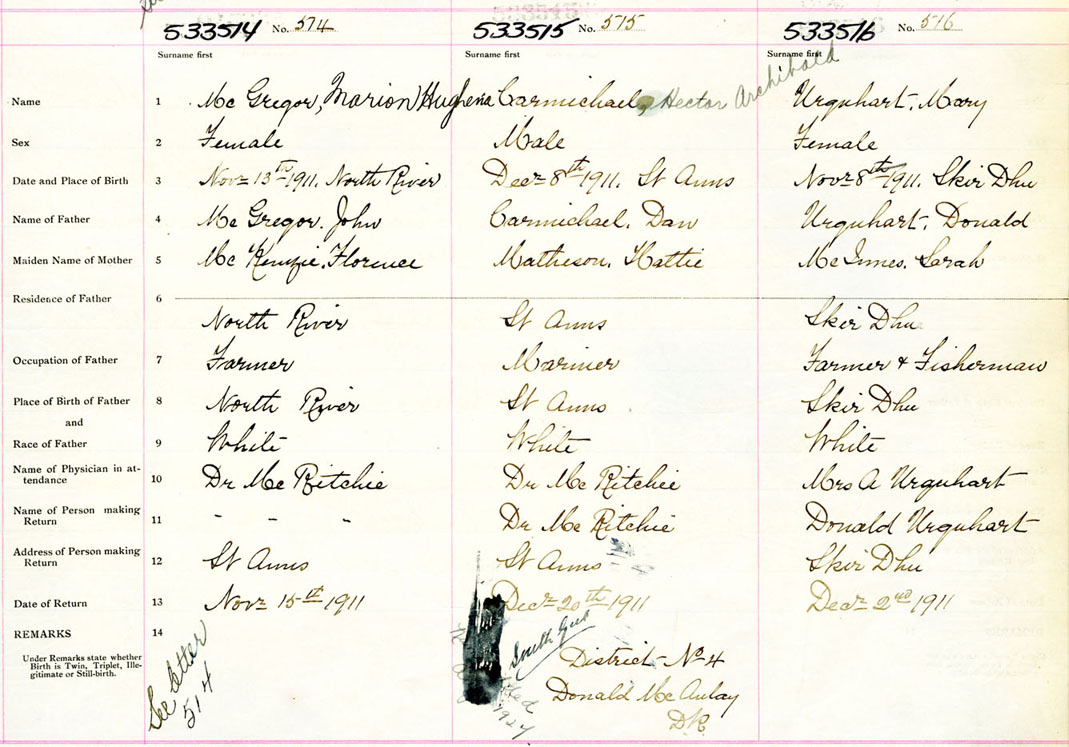 533514 No. 574 533515 No. 575 533516 No. 576
Surname first Surname first Surname first
Name 1 Mc Gregor, Marion Hughena Carmichael, Hector Archibald Urquhart. Mary
Sex 2 Female Male Female
Date and Place of Birth 3 Novr 13th 1911. North River Decr 8th 1911. St Anns Novr 8th 1911. Skir Dhu
Name of Father 4 Mc Gregor. John Carmichael. Dan Urquhart. Donald
Maiden Name of Mother 5 Mc Kenzie. Florence Matheson. Hattie McInnes. Sarah
Residence of Father 6
North River St Anns Skir Dhu
Occupation of Father 7 Farmer Mariner Farmer & Fisherman
Place of Birth of Father 8 North River St Anns Skir Dhu
and
Race of Father 9 White White White
Name of Physician in at-
tendance 10 Dr Mc Ritchie Dr Mc Ritchie Mrs A Urquhart
Name of Person making
Return 11 - - - Dr Mc Ritchie Donald Urquhart
Address of Person making
Return 12 St Anns St Anns Skir Dhu
Date of Return 13 Novr 15th 1911 Decr 20th 1911 Decr 2nd 1911
REMARKS 14
Under Remarks state whether
Birth is Twin, Triplet, Ille-
gitimate or Still-birth.
See letter
514
South Gut
1924
District No 4
Donald Mc Aulay
DR